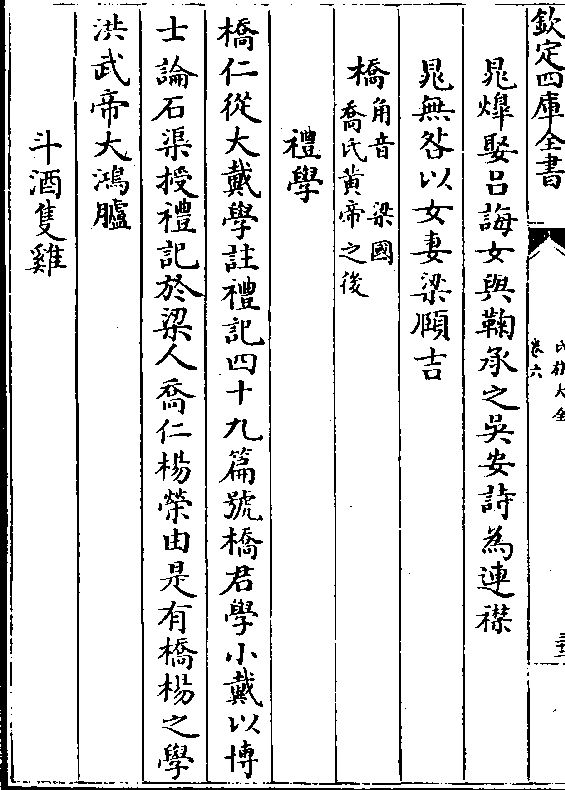 欽定四庫全書
氏族大全
卷六
晁㷆娶呂誨女與鞠承之吳安詩為連襟
晁無咎以女妻梁頤吉
橋角音 梁國
喬氏黃帝之後
禮學
橋仁從大戴學註禮記四十九篇號橋君學小戴以博
士論石渠授禮記於梁人喬仁楊榮由是有橋楊之學
洪武帝大鴻臚
斗酒隻雞